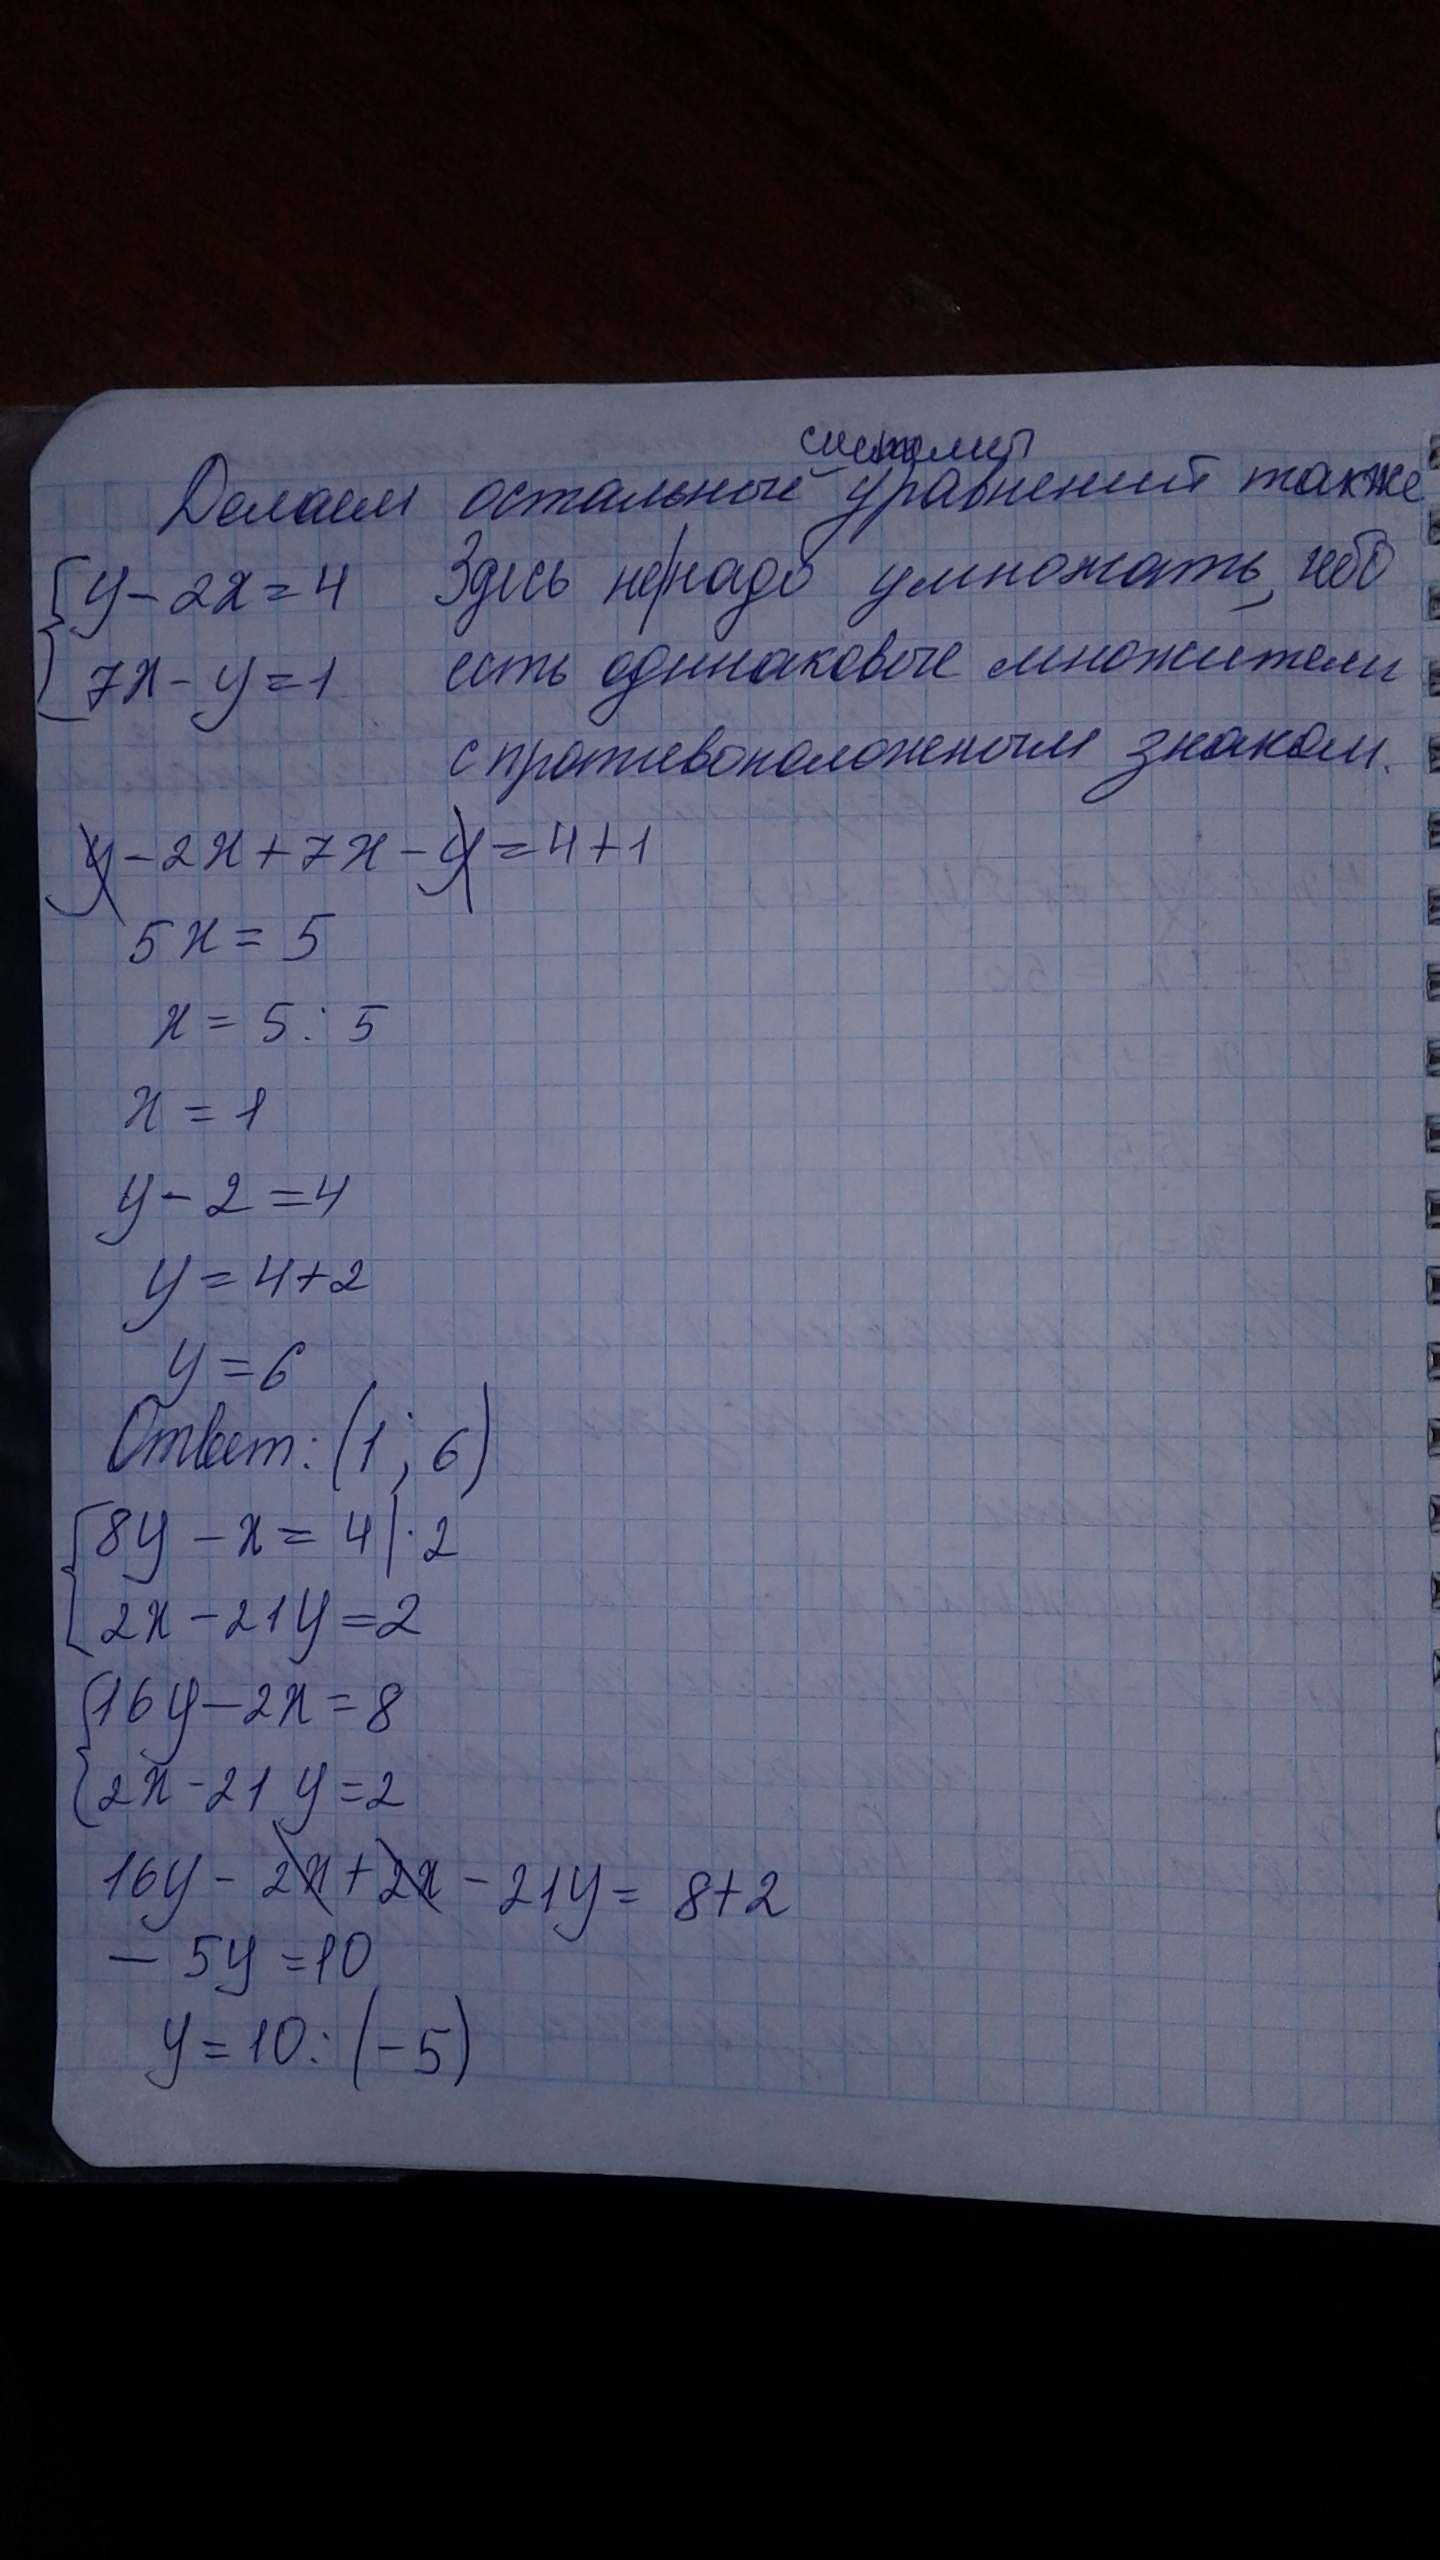 Делаем остальные системы уравнений также
{y - 2x = 4 Здесь не надо умножать,
7x - y = 1 есть одинаковые множители
с противоположеным знаком.
y - 2x + 7x - y = 4 + 1
5x = 5
x = 5 : 5
x = 1
y - 2 = 4
y = 4 + 2
y = 6
Ответ: (1 ; 6)
{8y - x = 4 | · 2
2x - 21y = 2
{16y - 2x = 8
2x - 21y = 2
16y - 2x + 2x - 21y = 8 + 2
- 5y = 10
y = 10 : (-5)